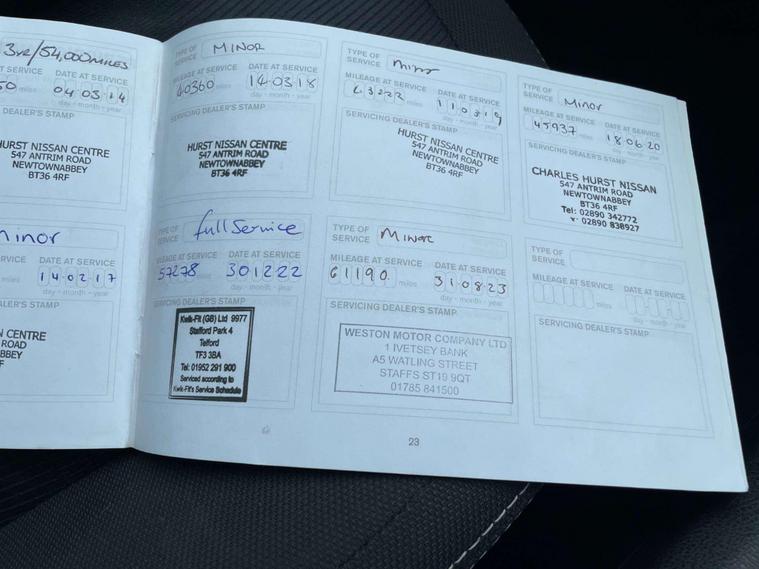 3YR/54,000 MILES
SERVICE DATE AT SERVICE
50 04 03 14
day - month - year
DEALER'S STAMP
HURST NISSAN CENTRE
547 ANTRIM ROAD
NEWTOWNABBEY
BT36 4RF
minor
DATE AT SERVICE
miles 14 02 17
day - month - year
DEALER'S STAMP
CENTRE
ROAD
BBEY
TYPE OF
SERVICE MINOR
MILEAGE AT SERVICE DATE AT SERVICE
40360 miles 14 03 18
day - month - year
SERVICING DEALER'S STAMP
HURST NISSAN CENTRE
547 ANTRIM ROAD
NEWTOWNABBEY
BT36 4RF
TYPE OF
SERVICE minor
MILEAGE AT SERVICE DATE AT SERVICE
miles 11 03 19
day - month - year
SERVICING DEALER'S STAMP
HURST NISSAN CENTRE
547 ANTRIM ROAD
NEWTOWNABBEY
BT36 4RF
TYPE OF
SERVICE Minor
MILEAGE AT SERVICE DATE AT SERVICE
45937 miles 18 06 20
day - month - year
SERVICING DEALER'S STAMP
CHARLES HURST NISSAN
547 ANTRIM ROAD
NEWTOWNABBEY
BT36 4RF
Tel: 02890 342772
02890 838927
TYPE OF
SERVICE full Service
MILEAGE AT SERVICE DATE AT SERVICE
57278 miles 30 12 22
day - month - year
SERVICING DEALER'S STAMP
Kwik-Fit (GB) Ltd 9977
Stafford Park 4
Telford
TF3 3BA
Tel: 01952 291 900
Serviced according to
Kwik-Fit's Service Schedule
TYPE OF
SERVICE Minor
MILEAGE AT SERVICE DATE AT SERVICE
61190 miles 31 08 23
day - month - year
SERVICING DEALER'S STAMP
WESTON MOTOR COMPANY LTD
1 IVETSEY BANK
A5 WATLING STREET
STAFFS ST19 9QT
01785 841500
TYPE OF
SERVICE
MILEAGE AT SERVICE DATE AT SERVICE
miles
day - month - year
SERVICING DEALER'S STAMP
23